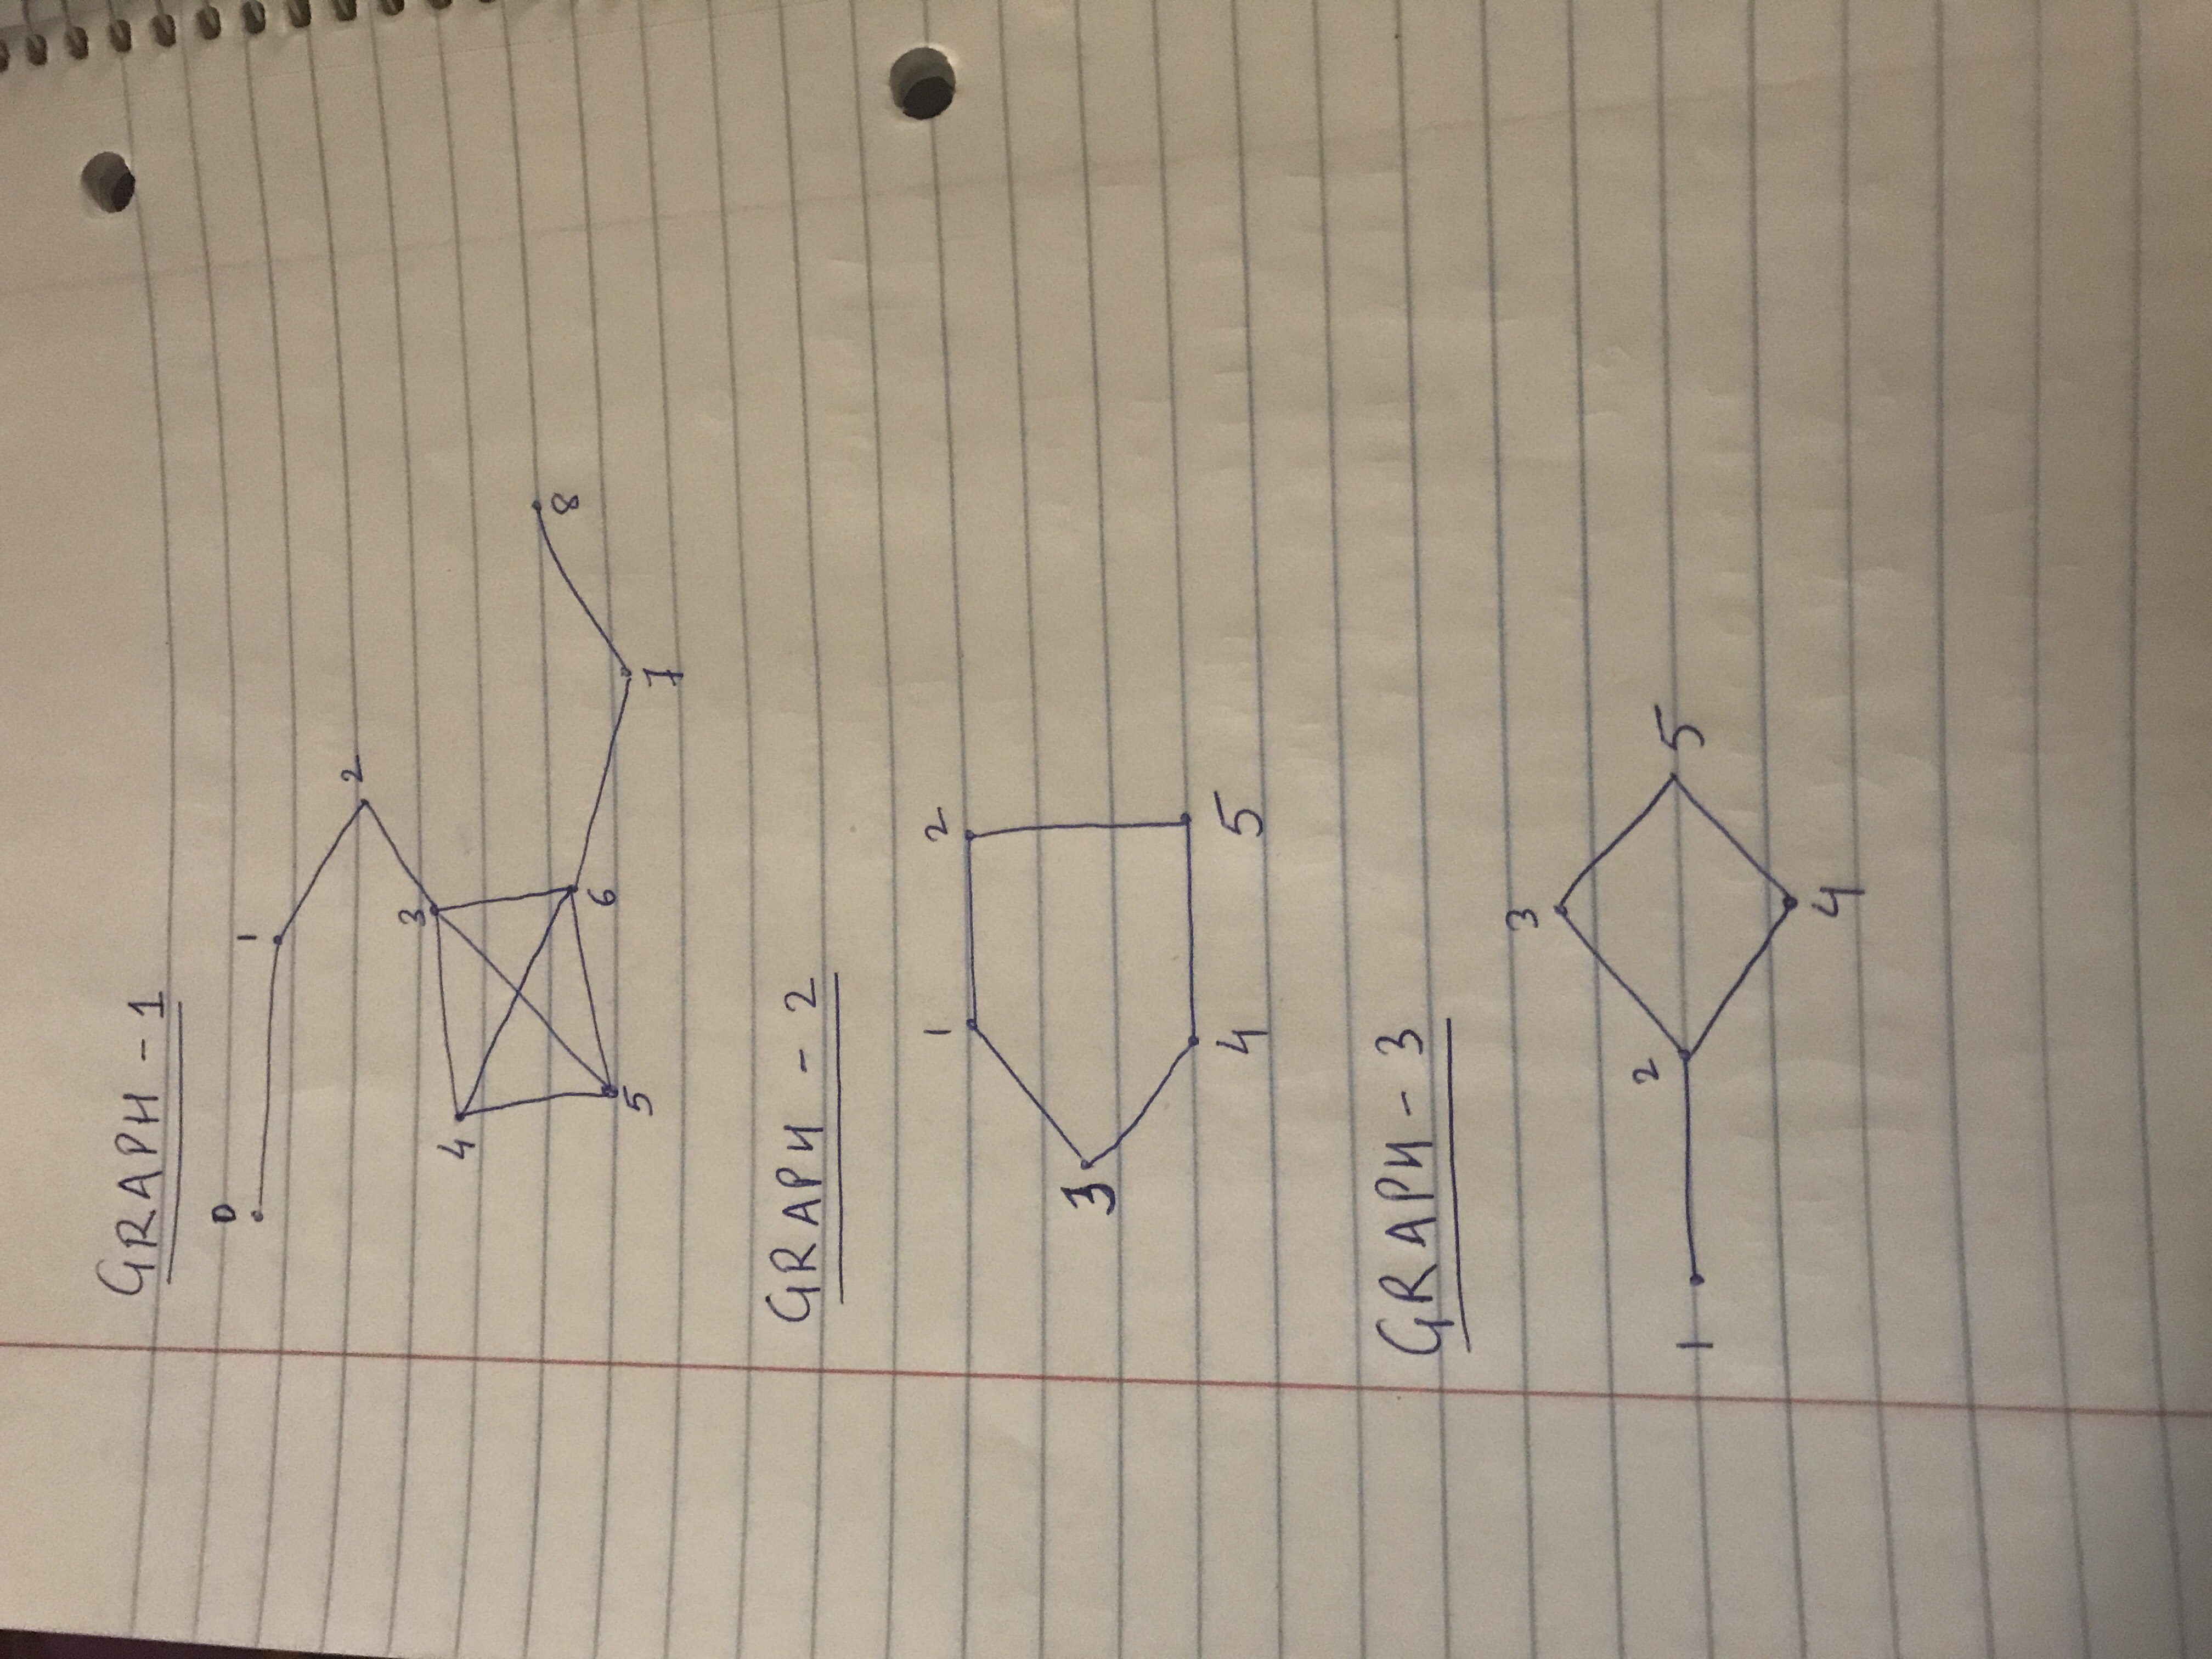 GRAPH - 1
0
1
2
3
4
8
6
5
7
GRAPH - 2
1 2
3
4 5
GRAPH - 3
3
2
1 5
4